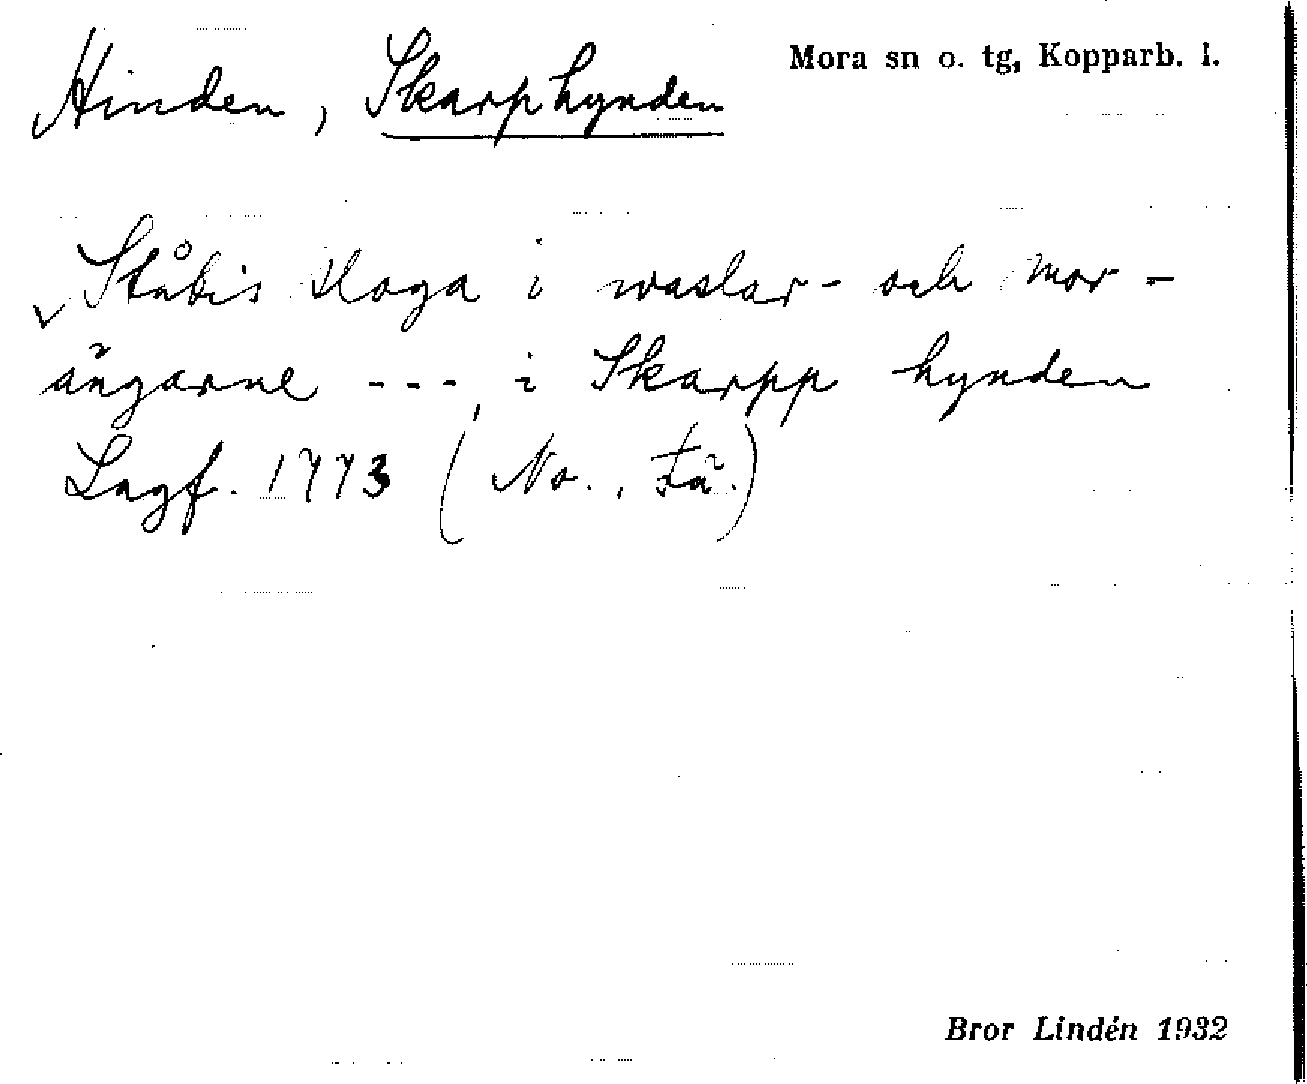 Hinden, Skarphynden
Mora sn o. tg, Kopparb. l.
Ståbis Haga i waslar- och mor-
ängarne --- i Skarpp hynden
Lagf. 1773 (No., Fä.)
Bror Lindén 1932